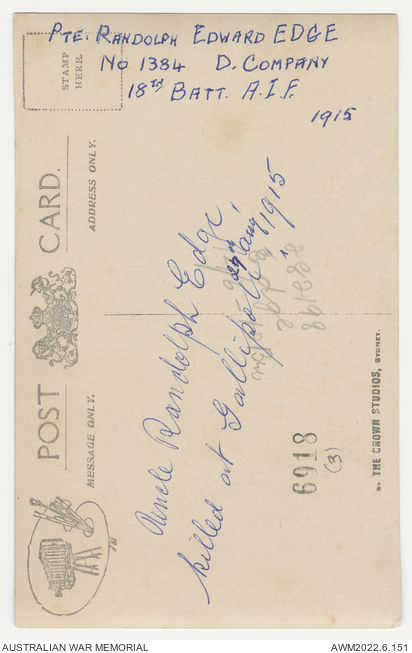 PTE. RANDOLPH EDWARD EDGE
No 1384 D. COMPANY
18TH BATT. A.I.F.
1915
STAMP
HERE.
POST CARD.
ADDRESS ONLY.
MESSAGE ONLY.
Uncle Randolph Edge,
killed at Gallipoli, 29th Aug, 1915
6918
(3)
BY THE CROWN STUDIOS, SYDNEY.
AUSTRALIAN WAR MEMORIAL
AWM2022.6.151